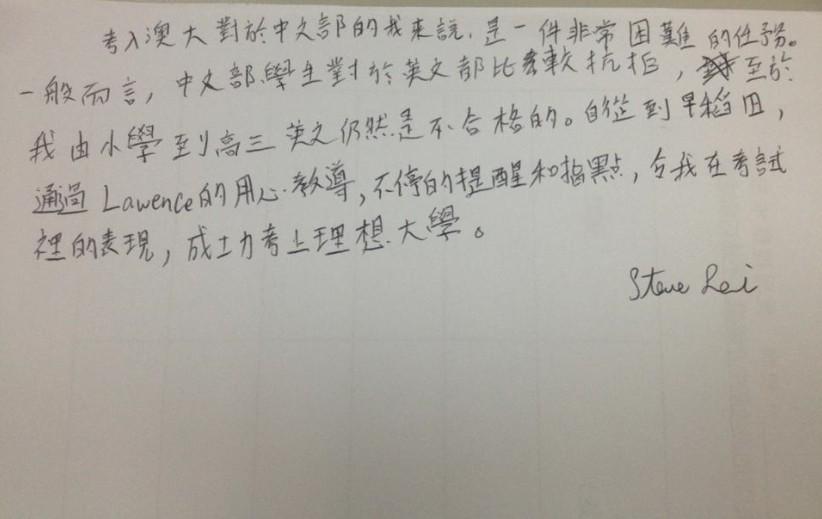 考入澳大對於中文部的我來說,是一件非常困難的任務。
一般而言,中文部學生對於英文部比較抗拒,至於
我由小學到高三英文仍然是不合格的。自從到早稻田,
通過Lawence的用心教導,不停的提醒和指點,令我在考試
裡的表現,成功考上理想大學。
Steve Lei